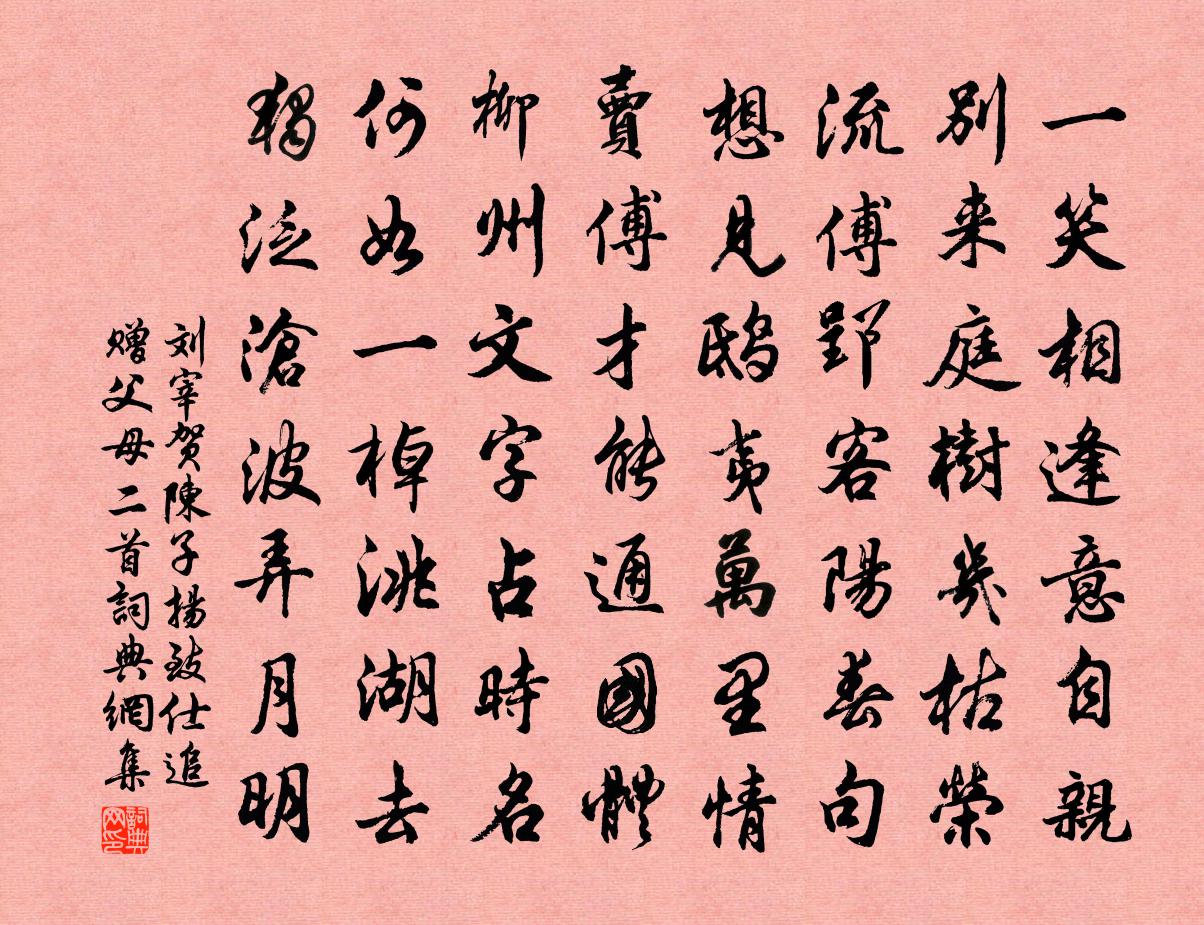 一笑相逢意自親
別来庭樹幾枯榮
流傳郢客陽春句
想見鴟夷萬里情
賈傅才能通國體
柳州文字占時名
何如一棹洮湖去
獨泛滄波弄月明
刘宰贺陳子揚致仕追
赠父母二首詞典網集
詞典
网印